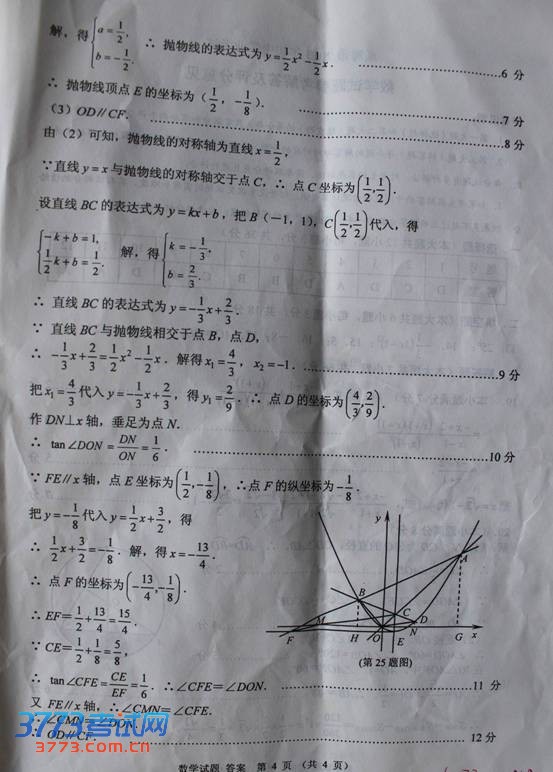 解，得 {a=1/2, b=-1/2. ∴ 抛物线的表达式为 y=1/2x²-1/2x. ……6 分
∴ 抛物线顶点 E 的坐标为（1/2，-1/8）. ……7 分
（3）OD∥CF. ……8 分
由（2）可知，抛物线的对称轴为直线 x=1/2，
∵直线 y=x 与抛物线的对称轴交于点 C，∴ 点 C 坐标为(1/2,1/2).
设直线 BC 的表达式为 y=kx+b，把 B（-1，1），C(1/2,1/2)代入，得
{-k+b=1, 1/2k+b=1/2. 解，得 {k=-1/3, b=2/3.
∴ 直线 BC 的表达式为 y=-1/3x+2/3.
∵ 直线 BC 与抛物线相交于点 B，点 D，
∴ -1/3x+2/3=1/2x²-1/2x. 解得 x₁=4/3，x₂=-1. ……9 分
把 x₁=4/3 代入 y=-1/3x+2/3，得 y₁=2/9. ∴ 点 D 的坐标为(4/3,2/9).
作 DN⊥x 轴，垂足为点 N.
∴ tan∠DON=DN/ON=1/6. ……10 分
∵ FE∥x 轴，点 E 坐标为(1/2,-1/8)，∴点 F 的纵坐标为-1/8.
把 y=-1/8 代入 y=1/2x+3/2，得
∴ 1/2x+3/2=-1/8. 解，得 x=-13/4.
∴ 点 F 的坐标为(-13/4,-1/8).
∴ EF=1/2+13/4=15/4.
∵ CE=1/2+1/8=5/8，
∴ tan∠CFE=CE/EF=1/6. ∴∠CFE=∠DON. ……11 分
又 FE∥x 轴，∴∠CMN=∠CFE.
∴∠CMN=∠DON.
∴ OD∥CF. ……12 分
y
A
B
C
M
D
F
H
O
E
N
G
x
(第 25题图)
3773考试网
3773.com.cn
数学试题 答案 第 4 页 （共 4 页）